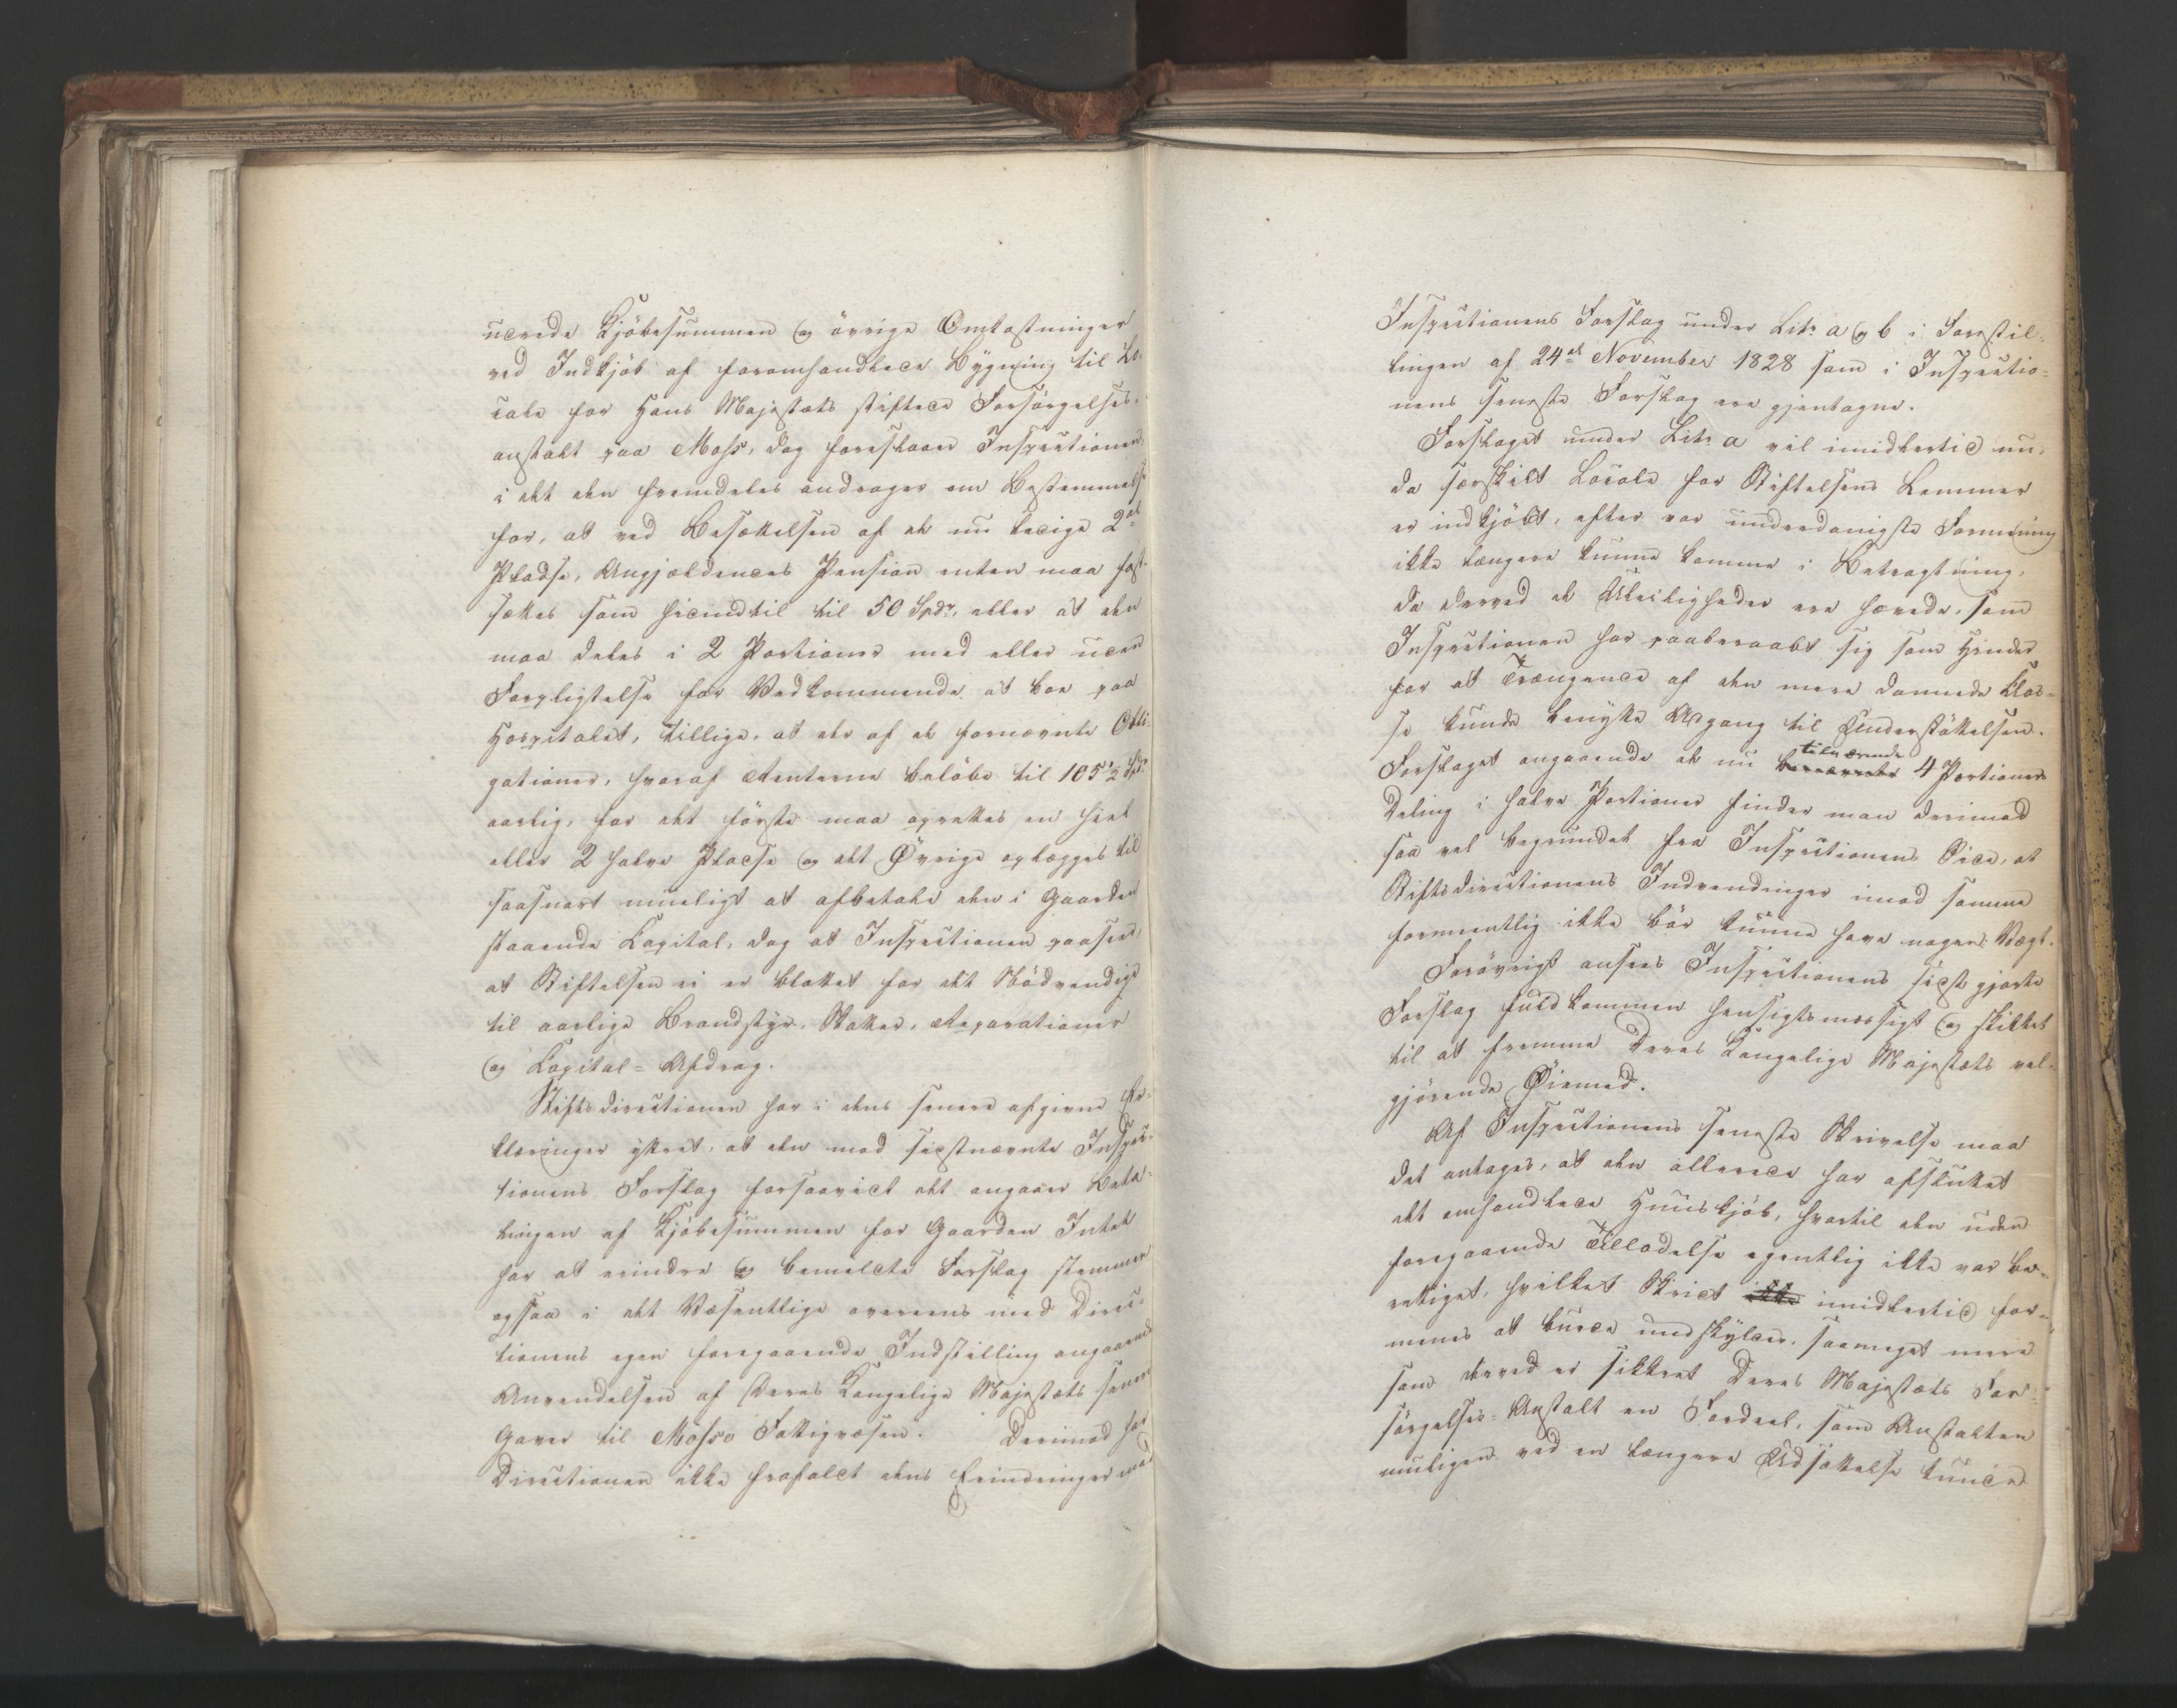 nævnte Kjöbesummen og övrige Omkostninger
ved Indkjöb af foromhandlede Bygning til Lo-
cale for Hans Majestæts stiftede Forsörgelses-
anstalt paa Moss, dog foreslaaer Inspectionen
i det den fremdeles andrager om Bestemmelse
for, at ved Besættelsen af de nu ledige 2de
Pladse, Angjældendes Pension enten maa fast-
sættes som hidindtil til 50 Spdr. eller at den
maa deles i 2 Portioner med eller uden
Forpligtelse for Vedkommende at boe paa
Hospitalet, tillige, at der af de fornævnte Obli-
gationer, hvoraf Renterne belöbe til 105 1/2 Spdr.
aarlig, for det förste maa oprettes en heel
eller 2 halve Pladse og det Övrige oplægges til
saasnart mueligt at afbetale den i Gaarden
staaende Kapital, dog at Inspectionen paaseer,
at Stiftelsen ei er blottet for det Nödvendige
til aarlige Brandstyr, Skatter, Reparationer
og Kapital-Afdrag.
Stiftsdirectionen har i dens senere afgivne Er-
klæringer yttret, at den mod sidstnævnte Inspec-
tionens Forslag forsaavidt det angaaer Beta-
lingen af Kjöbesummen for Gaarden Intet
har at erindre og bemeldte Forslag stemmer
ogsaa i det Væsentlige overeens med Direc-
tionens egen foregaaende Indstilling angaaende
Anvendelsen af Deres Kongelige Majestæts senere
Gaver til Mosse Fattigvæsen. Derimod har
Directionen ikke frafaldt dens Erindringer mod
Inspectionens Forslag under Litr. a og b i Forestil-
lingen af 24de November 1828 som i Inspectio-
nens seneste Forslag ere gjentagne.
Forslaget under Litr. a vil imidlertid nu,
da særskilt Locale for Stiftelsens Lemmer
er indkjöbt, efter vor underdanigste Formening
ikke længere kunne komme i Betragtning,
da derved de Uleiligheder ere hævede, som
Inspectionen har paaberaabt sig som Hinder
for at Trængende af den mere dannede Klas-
se kunde benytte Adgang til Understöttelsen.
Forslaget angaaende de nu tilværende 4 Portioners
Deling i halve Portioner finder man derimod
saa vel begrundet fra Inspectionens Side, at
Stiftsdirectionens Indvendinger imod samme
formeentlig ikke bör kunne have nogen Vægt.
Forövrigt ansees Inspectionens sidst gjorte
Forslag fuldkommen hensigtsmæssigt og skikket
til at fremme Deres Kongelige Majestæts vel-
gjörende Öiemed.
Af Inspectionens seneste Skrivelse maa
det antages, at den allerede har afsluttet
det omhandlede Huuskjöb, hvortil den uden
foregaaende Tilladelse egentlig ikke var be-
rettiget, hvilket Skridt imidlertid for-
menes at burde undskyldes, saameget mere
som derved er sikkret Deres Majestæts For-
sörgelses-Anstalt en Fordeel, som Anstalten
muligen ved en længere Udsættelse kunde